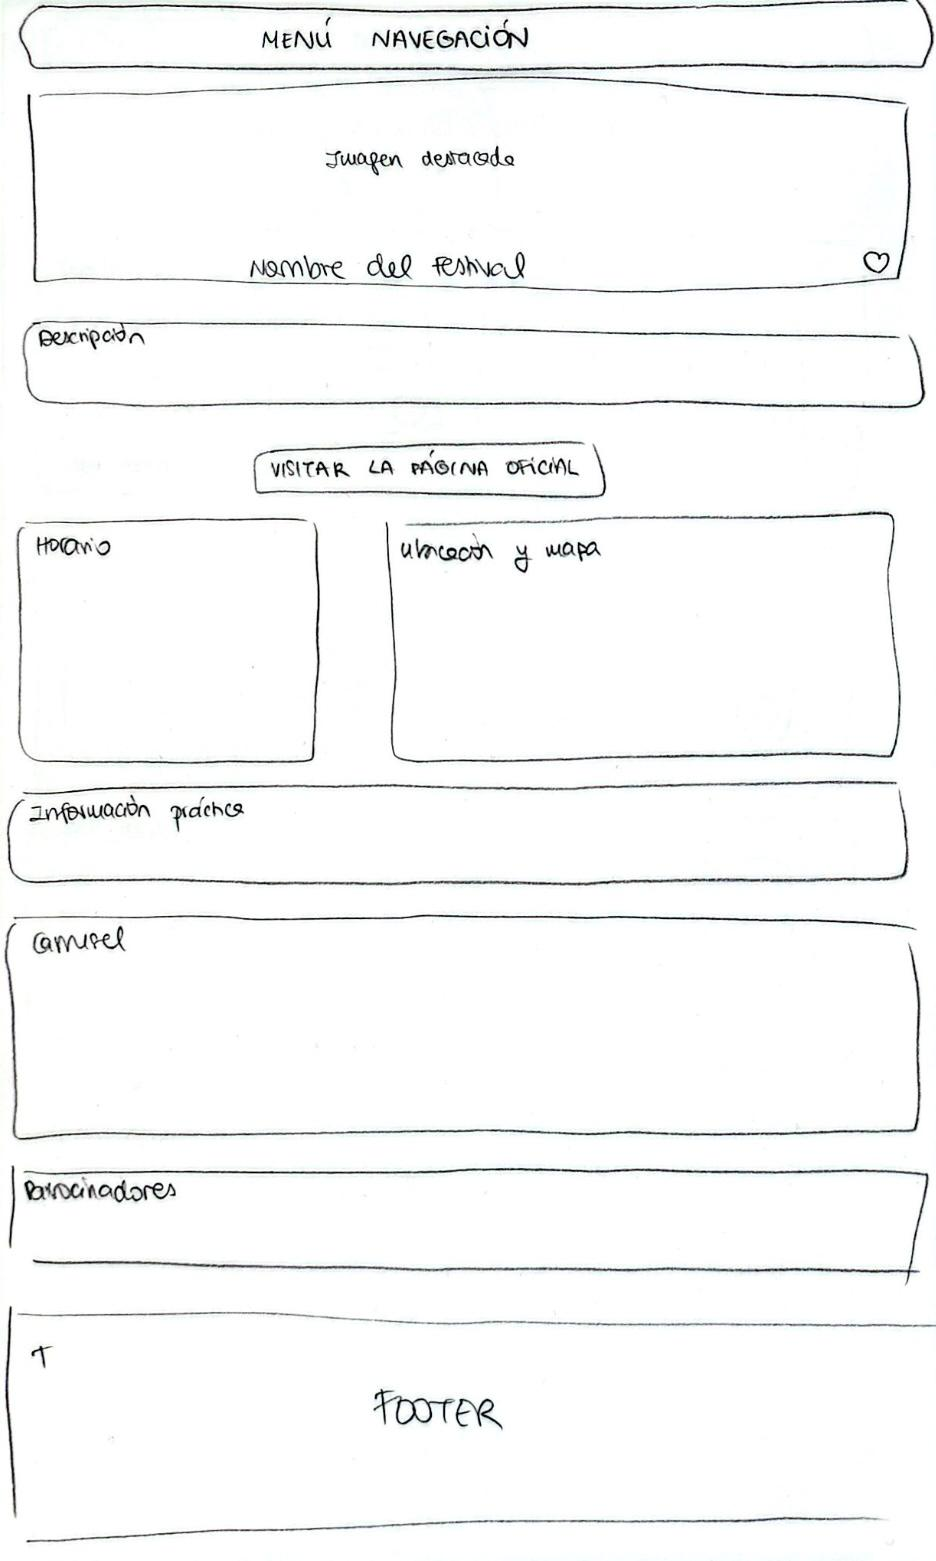 MENÚ NAVEGACIÓN
Imagen destacada
Nombre del festival
Descripción
VISITAR LA PÁGINA OFICIAL
Horario
Ubicación y mapa
Información práctica
Carrusel
Patrocinadores
↑
FOOTER